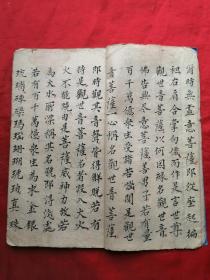 爾時無盡意菩薩即從座起偏
袒右肩合掌向佛而作是言世尊
觀世音菩薩以何因緣名觀世音
佛告無盡意菩薩善男子若有無量
百千萬億衆生受諸苦惱聞是觀世
音菩薩一心稱名觀世音菩薩
即時觀其音聲皆得解脫若有
持是觀世音菩薩名者設入大火
火不能燒由是菩薩威神力故若
為大水所漂稱其名號即得淺處
若有百千萬億衆生為求金銀
琉璃硨磲瑪瑙珊瑚琥珀真珠